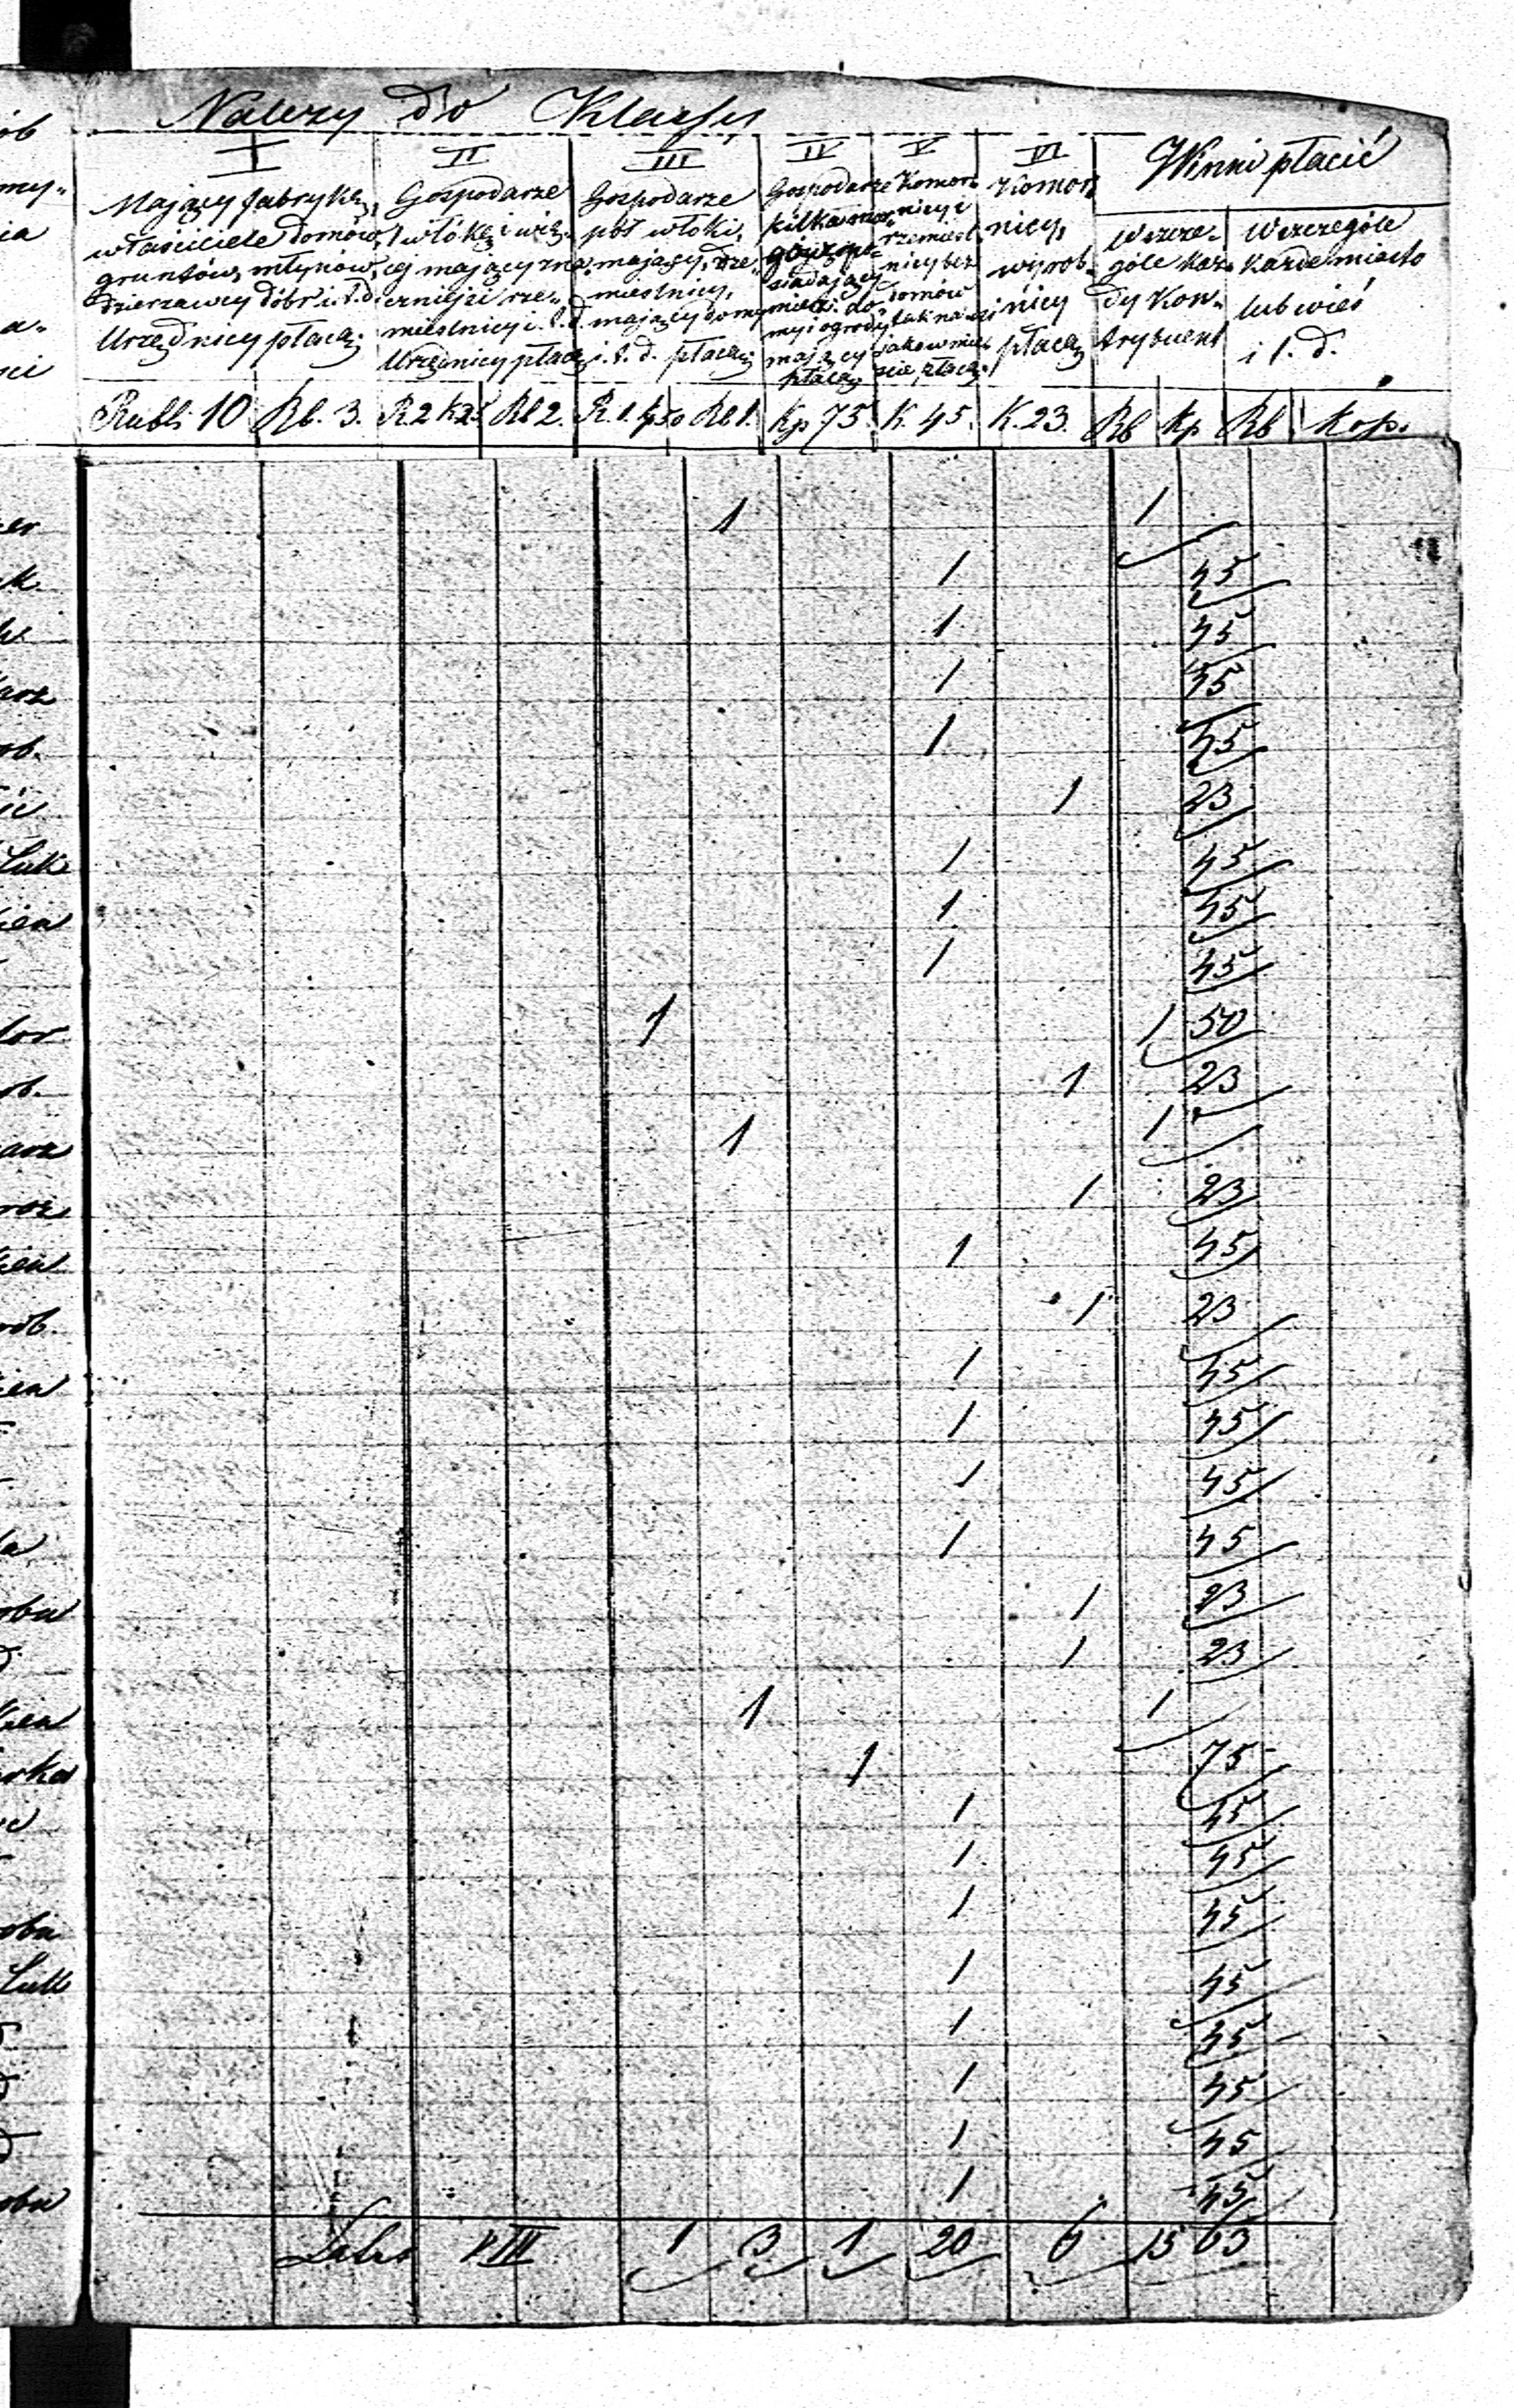 Należy do Klassy
I II III IV V VI Winni płacić
Mający fabrykę,
właściciele domów,
gruntów, młynów,
dzierżawcy dóbr i t. d.
Urzędnicy płacą;
Gospodarze
włókę i wię-
cej mający zna
czniejsi rze-
mieślnicy i t. d.
Urzędnicy płacą
Gospodarze
pół włóki,
mający, rze-
mieślnicy,
mający domy
i t. d. płacą;
Gospodarze
kilka mor-
gów po-
siadający
miesz. do
my i ogrody
mający
płacą
Komor-
nicy i
rzemieśl
nicy bez
domów
tak na wsi
jako w mieś
cie płacą
Komor
nicy,
wyrob
nicy
płacą
Wszcze-
góle każ-
dy Kon-
trybuent
W szczególe
każde miasto
lub wieś
i t. d.
Rubli 10 Rb. 3. R. 2 k 25 Rb 2. R. 1. kp 50 Rb 1. Kp 75. K. 45. K. 23. Rb Kp Rb Kop.
er 1 1
k. 1 45
1 45
arz 1 45
ob. 1 45
ic 1 23
1 45
ien 1 45
1 45
lor 1 1 50
ob. 1 23
arz 1 1
roz 1 23
ien 1 45
rob. 1 23
ien 1 45
1 45
1 45
la 1 45
oba 1 23
1 23
ien 1 1
rka 1 75
1 45
1 45
oba 1 45
1 45
1 45
1 45
1 45
oba 1 45
Latus VIII 1 3 1 20 6 15 63